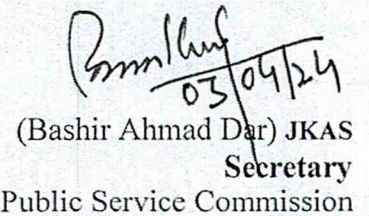 03/04/24
(Bashir Ahmad Dar) JKAS
Secretary
Public Service Commission